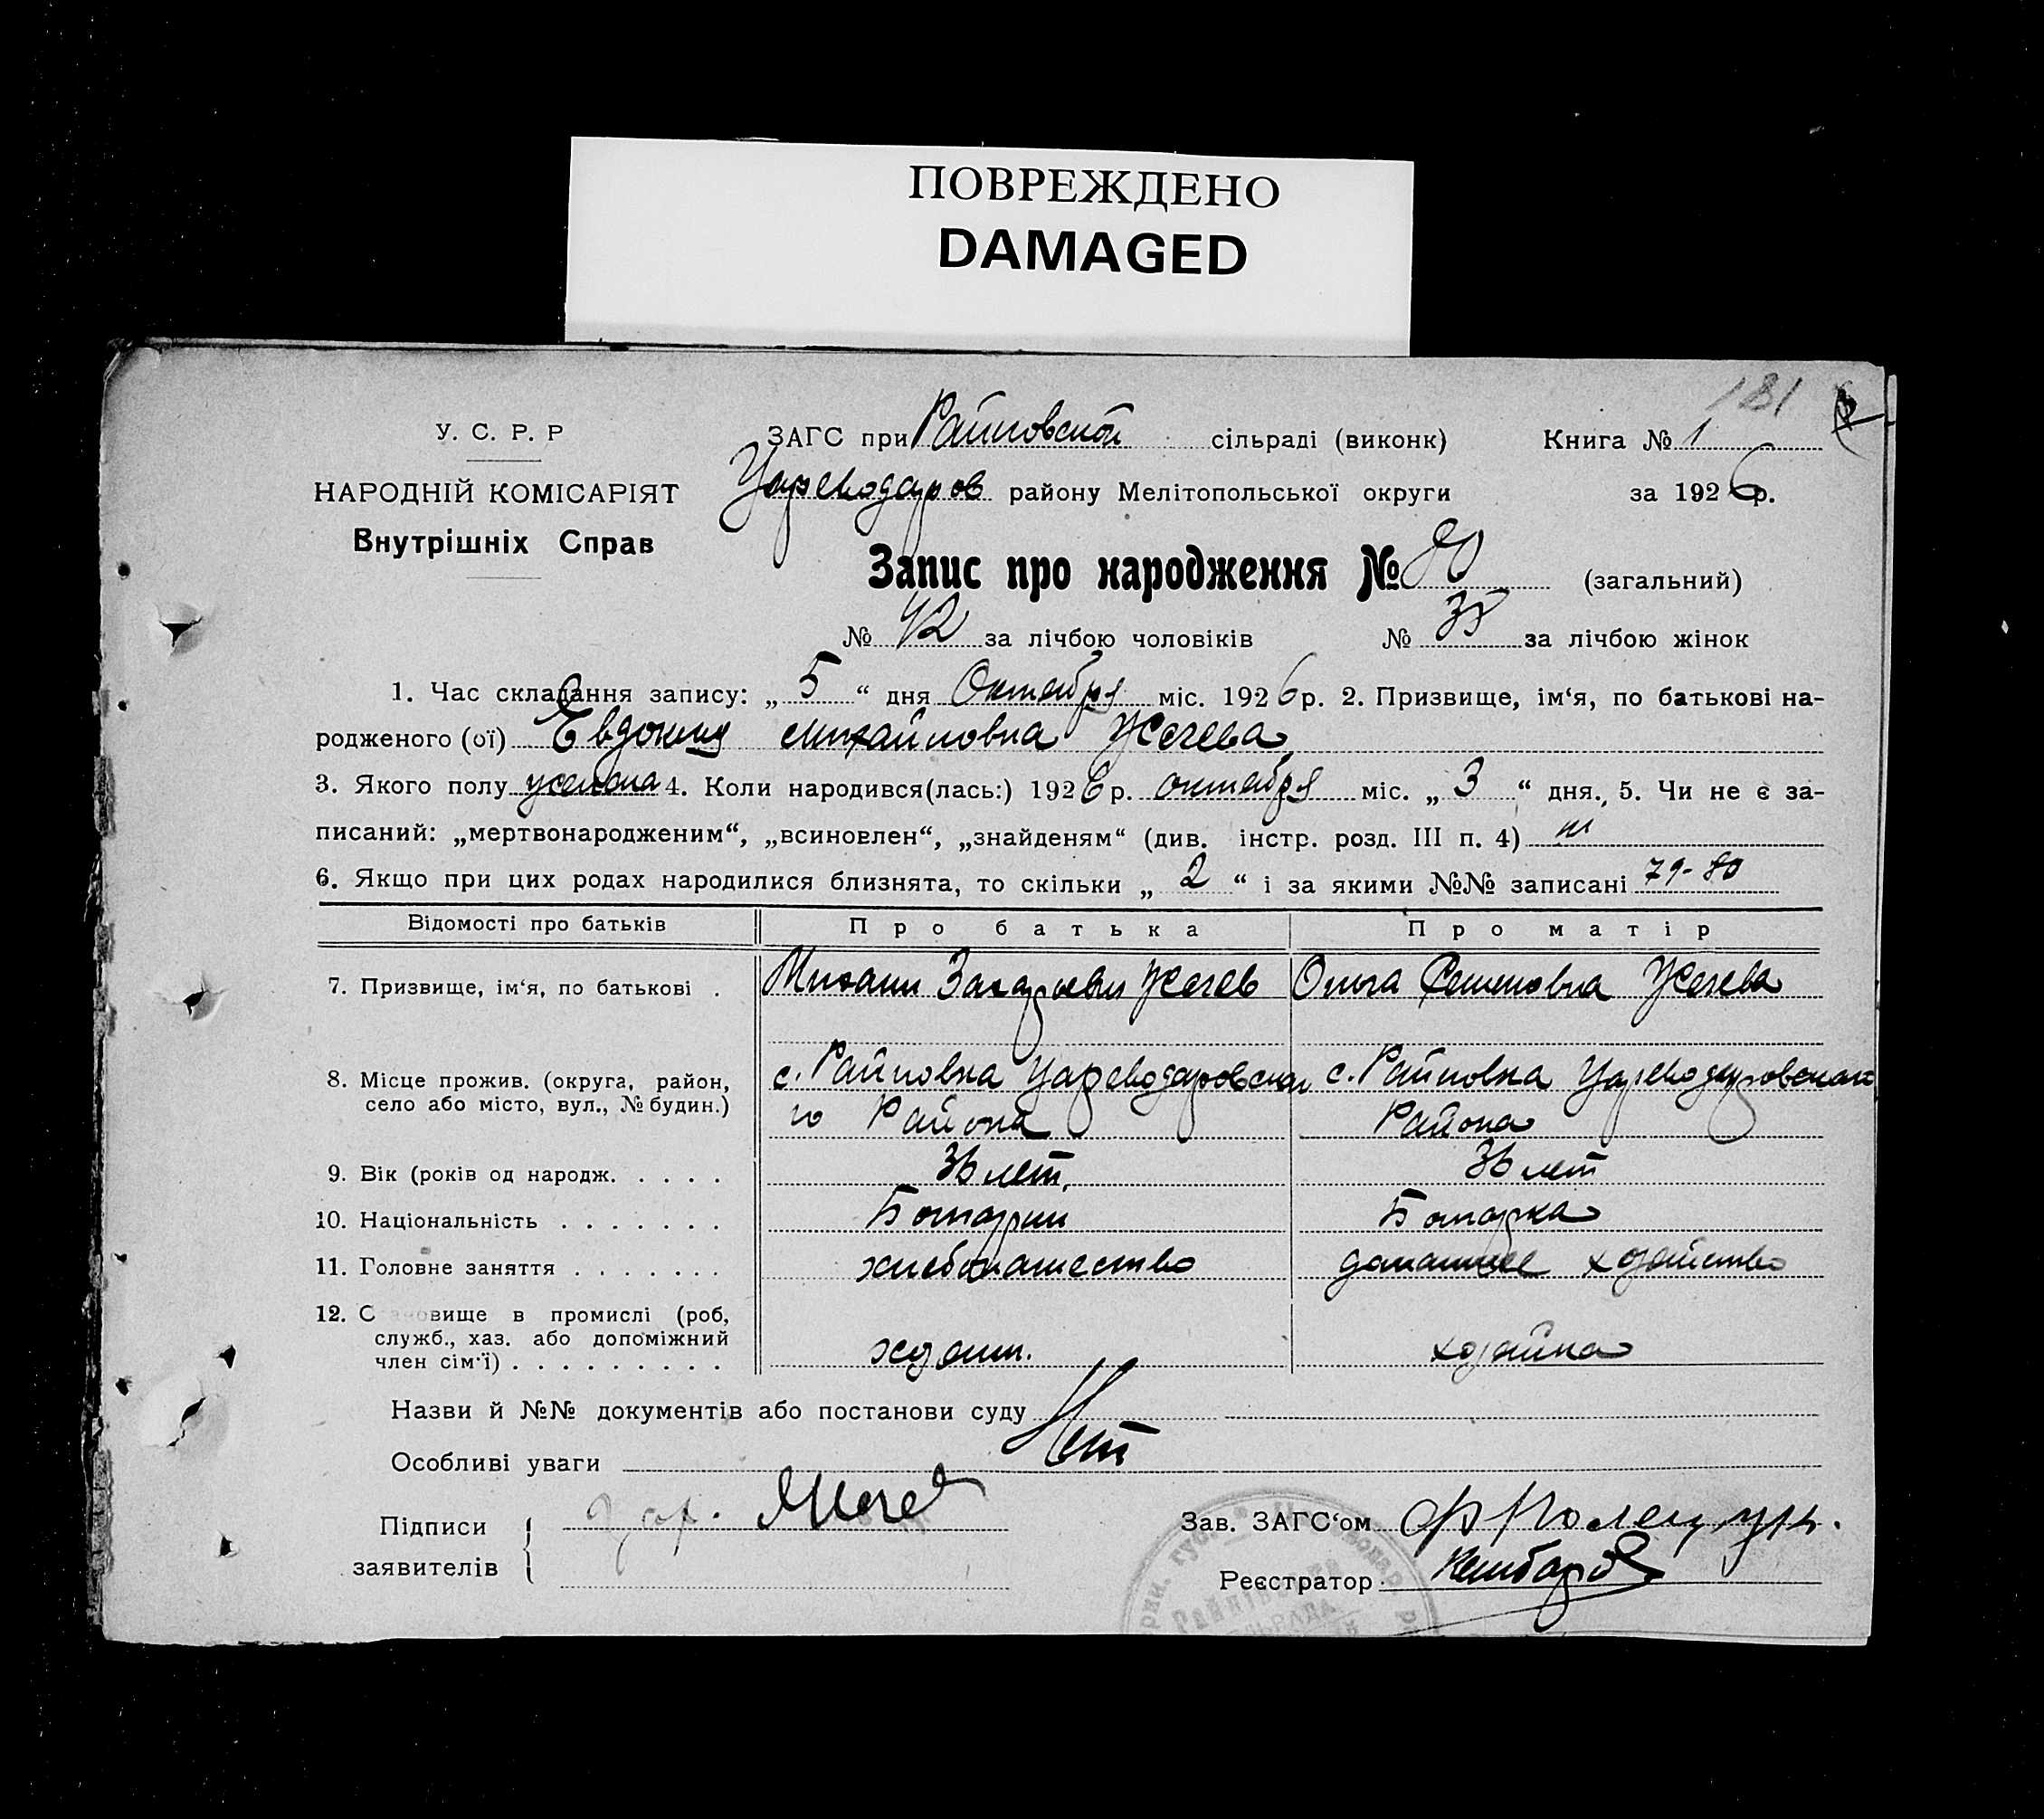 ПОВРЕЖДЕНО
DAMAGED
181
У. С. Р. Р
НАРОДНІЙ КОМІСАРІЯТ
Внутрішніх Справ
ЗАГС при Райновской сільраді (виконк) Книга № 1
Цареводаров району Мелітопольської округи за 1926 р.
Запис про народження № 80 (загальний)
№ 42 за лічбою чоловіків № 38 за лічбою жінок
1. Час складання запису: „ 5 “ дня Октября міс. 1926 р. 2. Призвище, ім‘я, по батькові на-
родженого (ої) Евдокия Михайловна Жечева
3. Якого полу женска 4. Коли народився(лась:) 1926 р. октября міс. „ 3 “ дня., 5. Чи не є за-
писаний: „мертвонародженим“, „всиновлен“, „знайденям“ (див. інстр. розд. III п. 4)
6. Якщо при цих родах народилися близнята, то скільки „ 2 “ і за якими №№ записані 79-80
Відомості про батьків Про батька Про матір
7. Призвище, ім‘я, по батькові . Михаил Захарьевич Жечев Ольга Семеновна Жечева
8. Місце прожив. (округа, район, село або місто, вул., № будин.) с. Райновка Цареводаровско с. Райновка Цареводаровского
го Района Района
9. Вік (років од народж. . . . . 36 лет. 36 лет
10. Національність . . . . . . . Болгарин Болгарка
11. Головне заняття . . . . . . . хлебопашество домашнее хозяйство
12. С новище в промислі (роб,
служб., хаз. або допоміжний
член сім‘ї) . . . . . . . . . хозяин. хозяйка
Назви й №№ документів або постанови суду
Нет
Особливі уваги
Підписи Жечев
заявителів
Зав. ЗАГС‘ом
Реєстратор